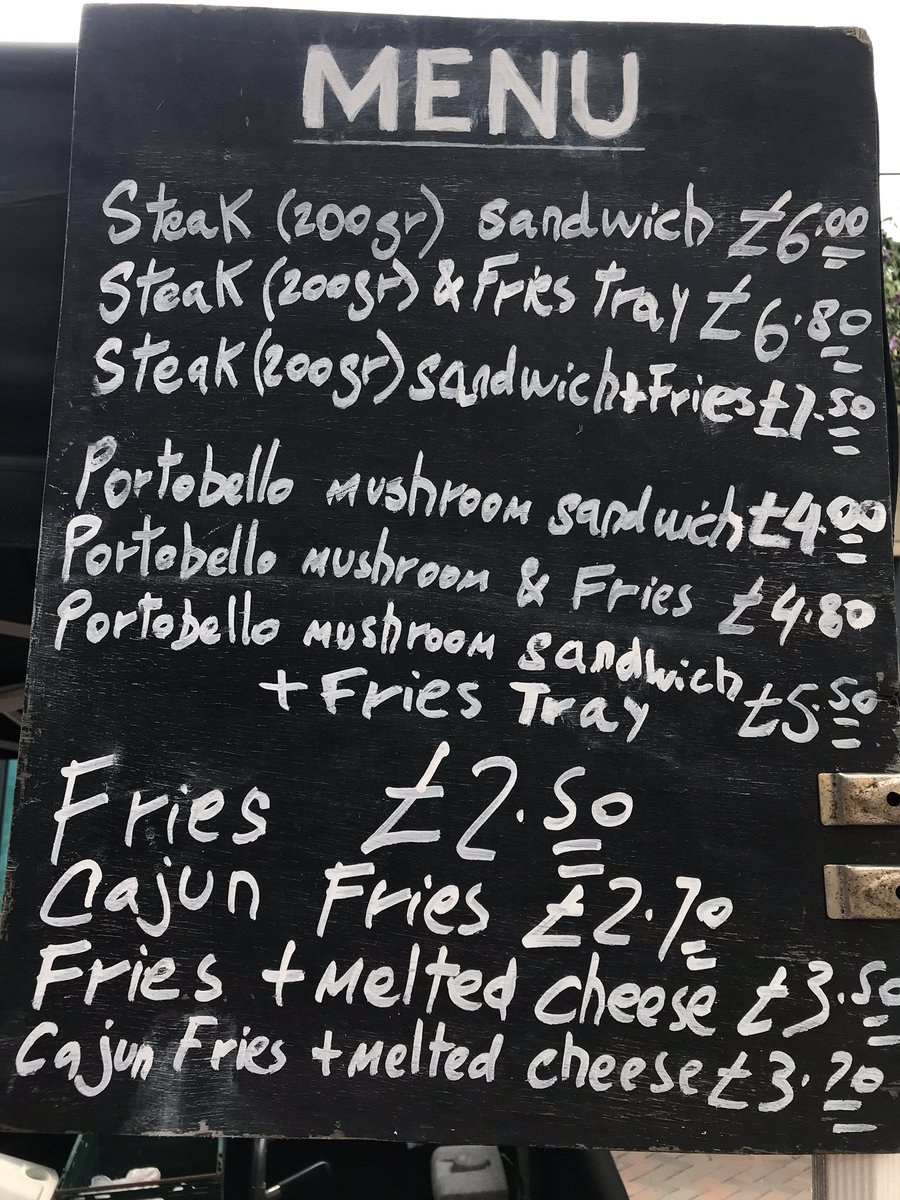 MENU
Steak (200gr) sandwich £6.00
Steak (200gr) & Fries Tray £6.80
Steak (200gr) sandwich+Fries £7.50
Portobello mushroom sandwich £4.00
Portobello mushroom & Fries £4.80
Portobello mushroom sandwich
+ Fries Tray £5.50
Fries £2.50
Cajun Fries £2.70
Fries + Melted cheese £3.50
Cajun Fries + Melted cheese £3.70